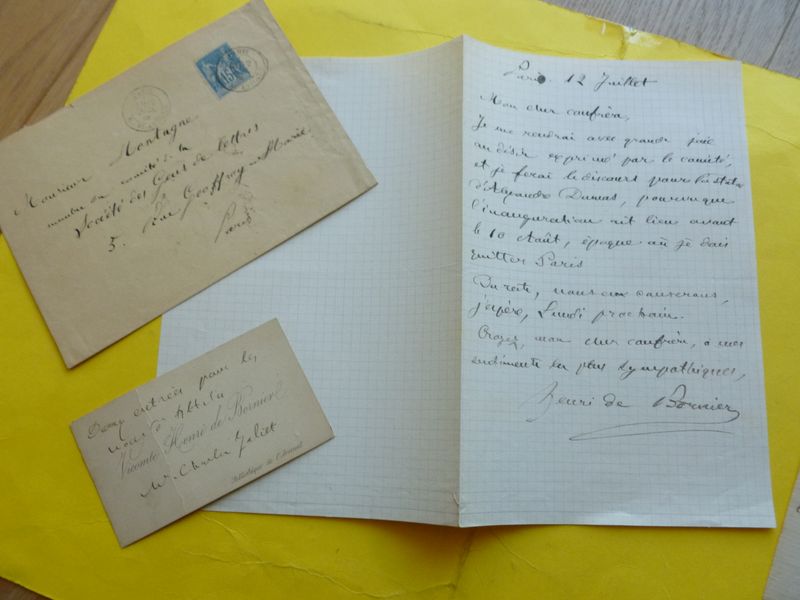 Monsieur Montagne
membre du comité de la
Société des Gens de lettres
5. Rue Geoffroy-Marie
Paris
15
Paris 12 Juillet
Mon cher confrère,
Je me rendrai avec grande joie
au désir exprimé par le comité
et je ferai le discours pour la statue
d'Alexandre Dumas, pourvu que
l'inauguration ait lieu avant
le 10 Août, époque où je dois
quitter Paris
Du reste, nous en causerons,
j'espère, Lundi prochain.
Croyez, mon cher confrère, à mes
sentiments les plus sympathiques,
Henri de Bornier
Deux entrées pour les
Vicomte Henri de Bornier
Mr Charles
Bibliothèque de l'Arsenal